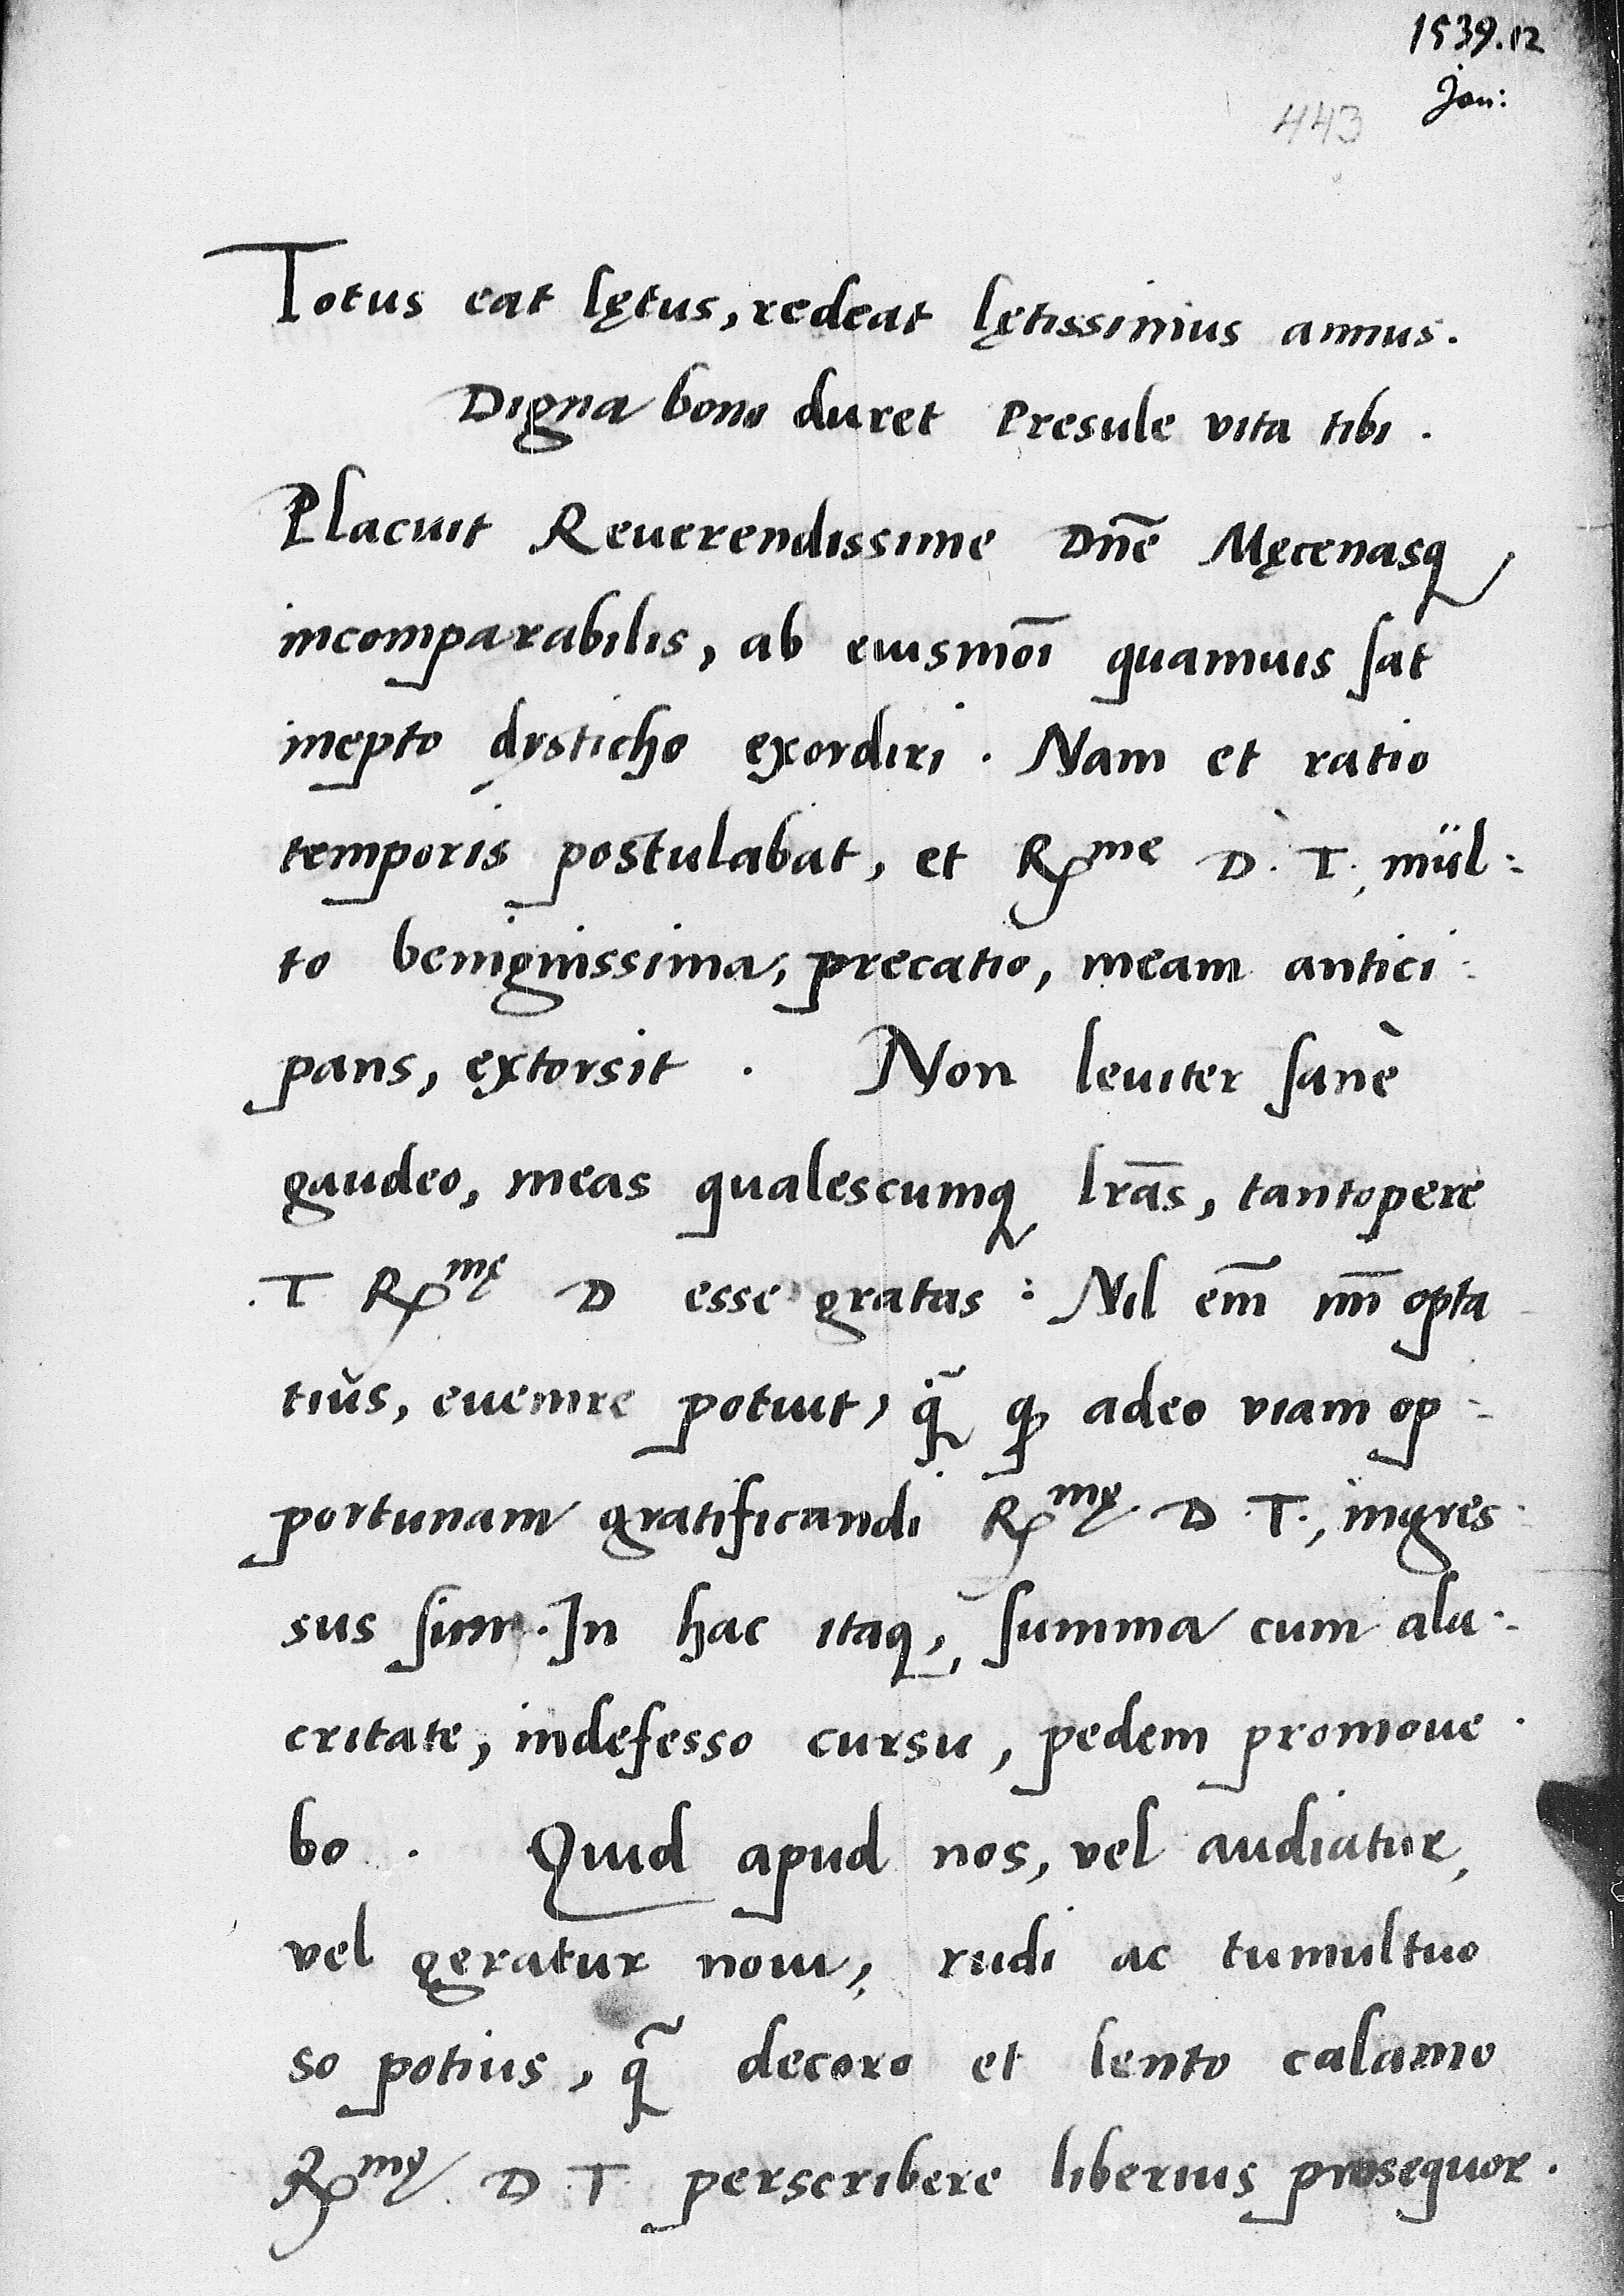 1539.12
Jan:
443
Totus eat lętus, redeat lętissimus annus.
Digna bono duret Presule vita tibi.
Placuit Reuerendissime Dn̄e Męcenasq
incomparabilis, ab eiusmōi quamuis sat
inepto dysticho exordiri. Nam et ratio
temporis postulabat, et Rme D. T., mul:
to benignissima, precatio, meam antici:
pans, extorsit. Non leuiter sanè
gaudeo, meas qualescumq lrās, tantopere
T Rmę D esse gratas: Nil em̄ mi opta
tius, euenire potuit, q̄ q adeo viam op:
portunam gratificandi Rmę. D. T., ingres:
sus sim. In hac itaq, summa cum ala:
critate, indefesso cursu, pedem promoue:
bo. Quid apud nos, vel audiatur,
vel geratur noui, rudi ac tumultuo
so potius, q̄ decoro et lento calamo
Rmę. D. T. perscribere liberius prosequor.